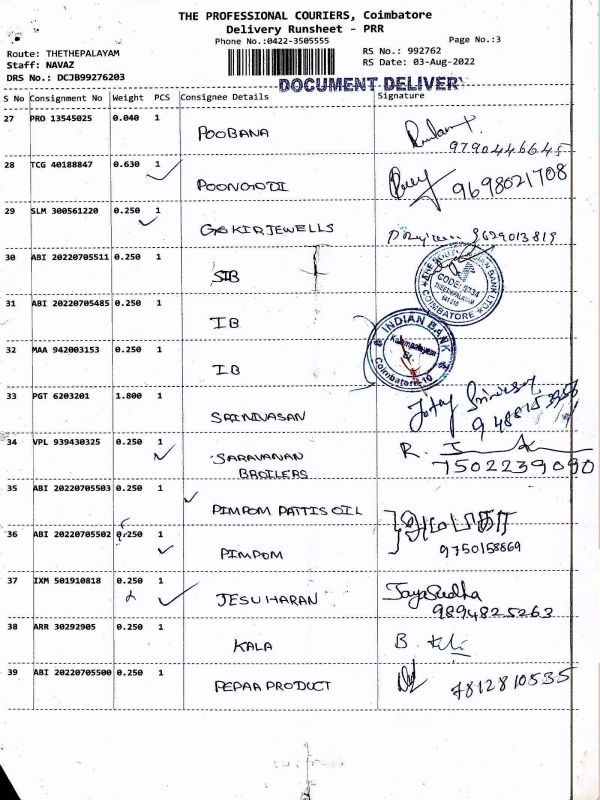 THE PROFESSIONAL COURIERS, Coimbatore
Delivery Runsheet - PRR
Phone No.:0422-3505555
Page No.:3
Route: THETHEPALAYAM
RS No.: 992762
Staff: NAVAZ
RS Date: 03-Aug-2022
DRS No.: DCJB99276203
DOCUMENT DELIVERY
S No Consignment No Weight PCS Consignee Details Signature
27 PRO 13545025 0.040 1 POOBANA
9790446645
28 TCG 40188847 0.630 1 POONGODI
9698021708
29 SLM 300561220 0.250 1 GOKIRJEWELLS
9629013819
30 ABI 20220705511 0.250 1 SIB
COIMBATORE
31 ABI 20220705485 0.250 1 IB
INDIAN BANK
Coimbatore-10
32 MAA 942003153 0.250 1 IB
33 PGT 6203201 1.800 1 SRINIVASAN
34 VPL 939430325 0.250 1 SARAVANAN
BROILERS
R.
7502239090
35 ABI 20220705503 0.250 1 PIMPOM PATTIS OIL
36 ABI 20220705502 0.250 1 PIMPOM
9750158869
37 IXM 501910818 0.250 1 JESUHARAN
JayaSudha
9894825263
38 ARR 30292905 0.250 1 KALA
B.
39 ABI 20220705500 0.250 1 PEPAA PRODUCT
7812810535